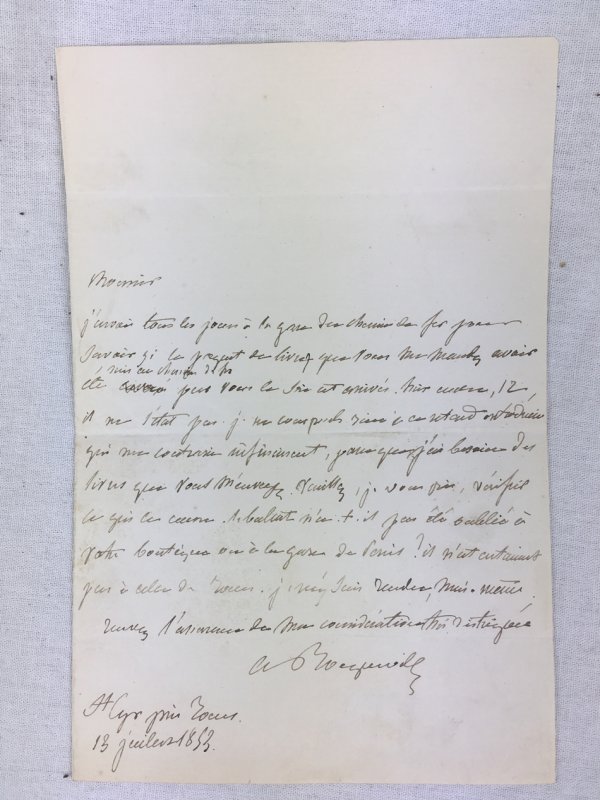 Monsieur
j'envoie tous les jours à la gare du chemin de fer pour
savoir si le paquet de livres que vous me mandez avoir
mis au chemin de fer
été par vous le six est arrivé. hier encore, 12
il ne l'était pas. je ne comprends rien à ce retard extraordinaire
qui me contrarie infiniment, parce que j'ai besoin des
livres que vous m'envoyez. Veuillez, je vous prie, vérifier
ce qui le cause. Le ballot n'a-t-il pas été oublié à
votre boutique ou à la gare de Paris? il n'est certainement
pas à celle de Tours. je m'y suis rendu moi-même.
recevez l'assurance de ma considération très distinguée
A Tocqueville
St Cyr près Tours.
13 juillet 1853.